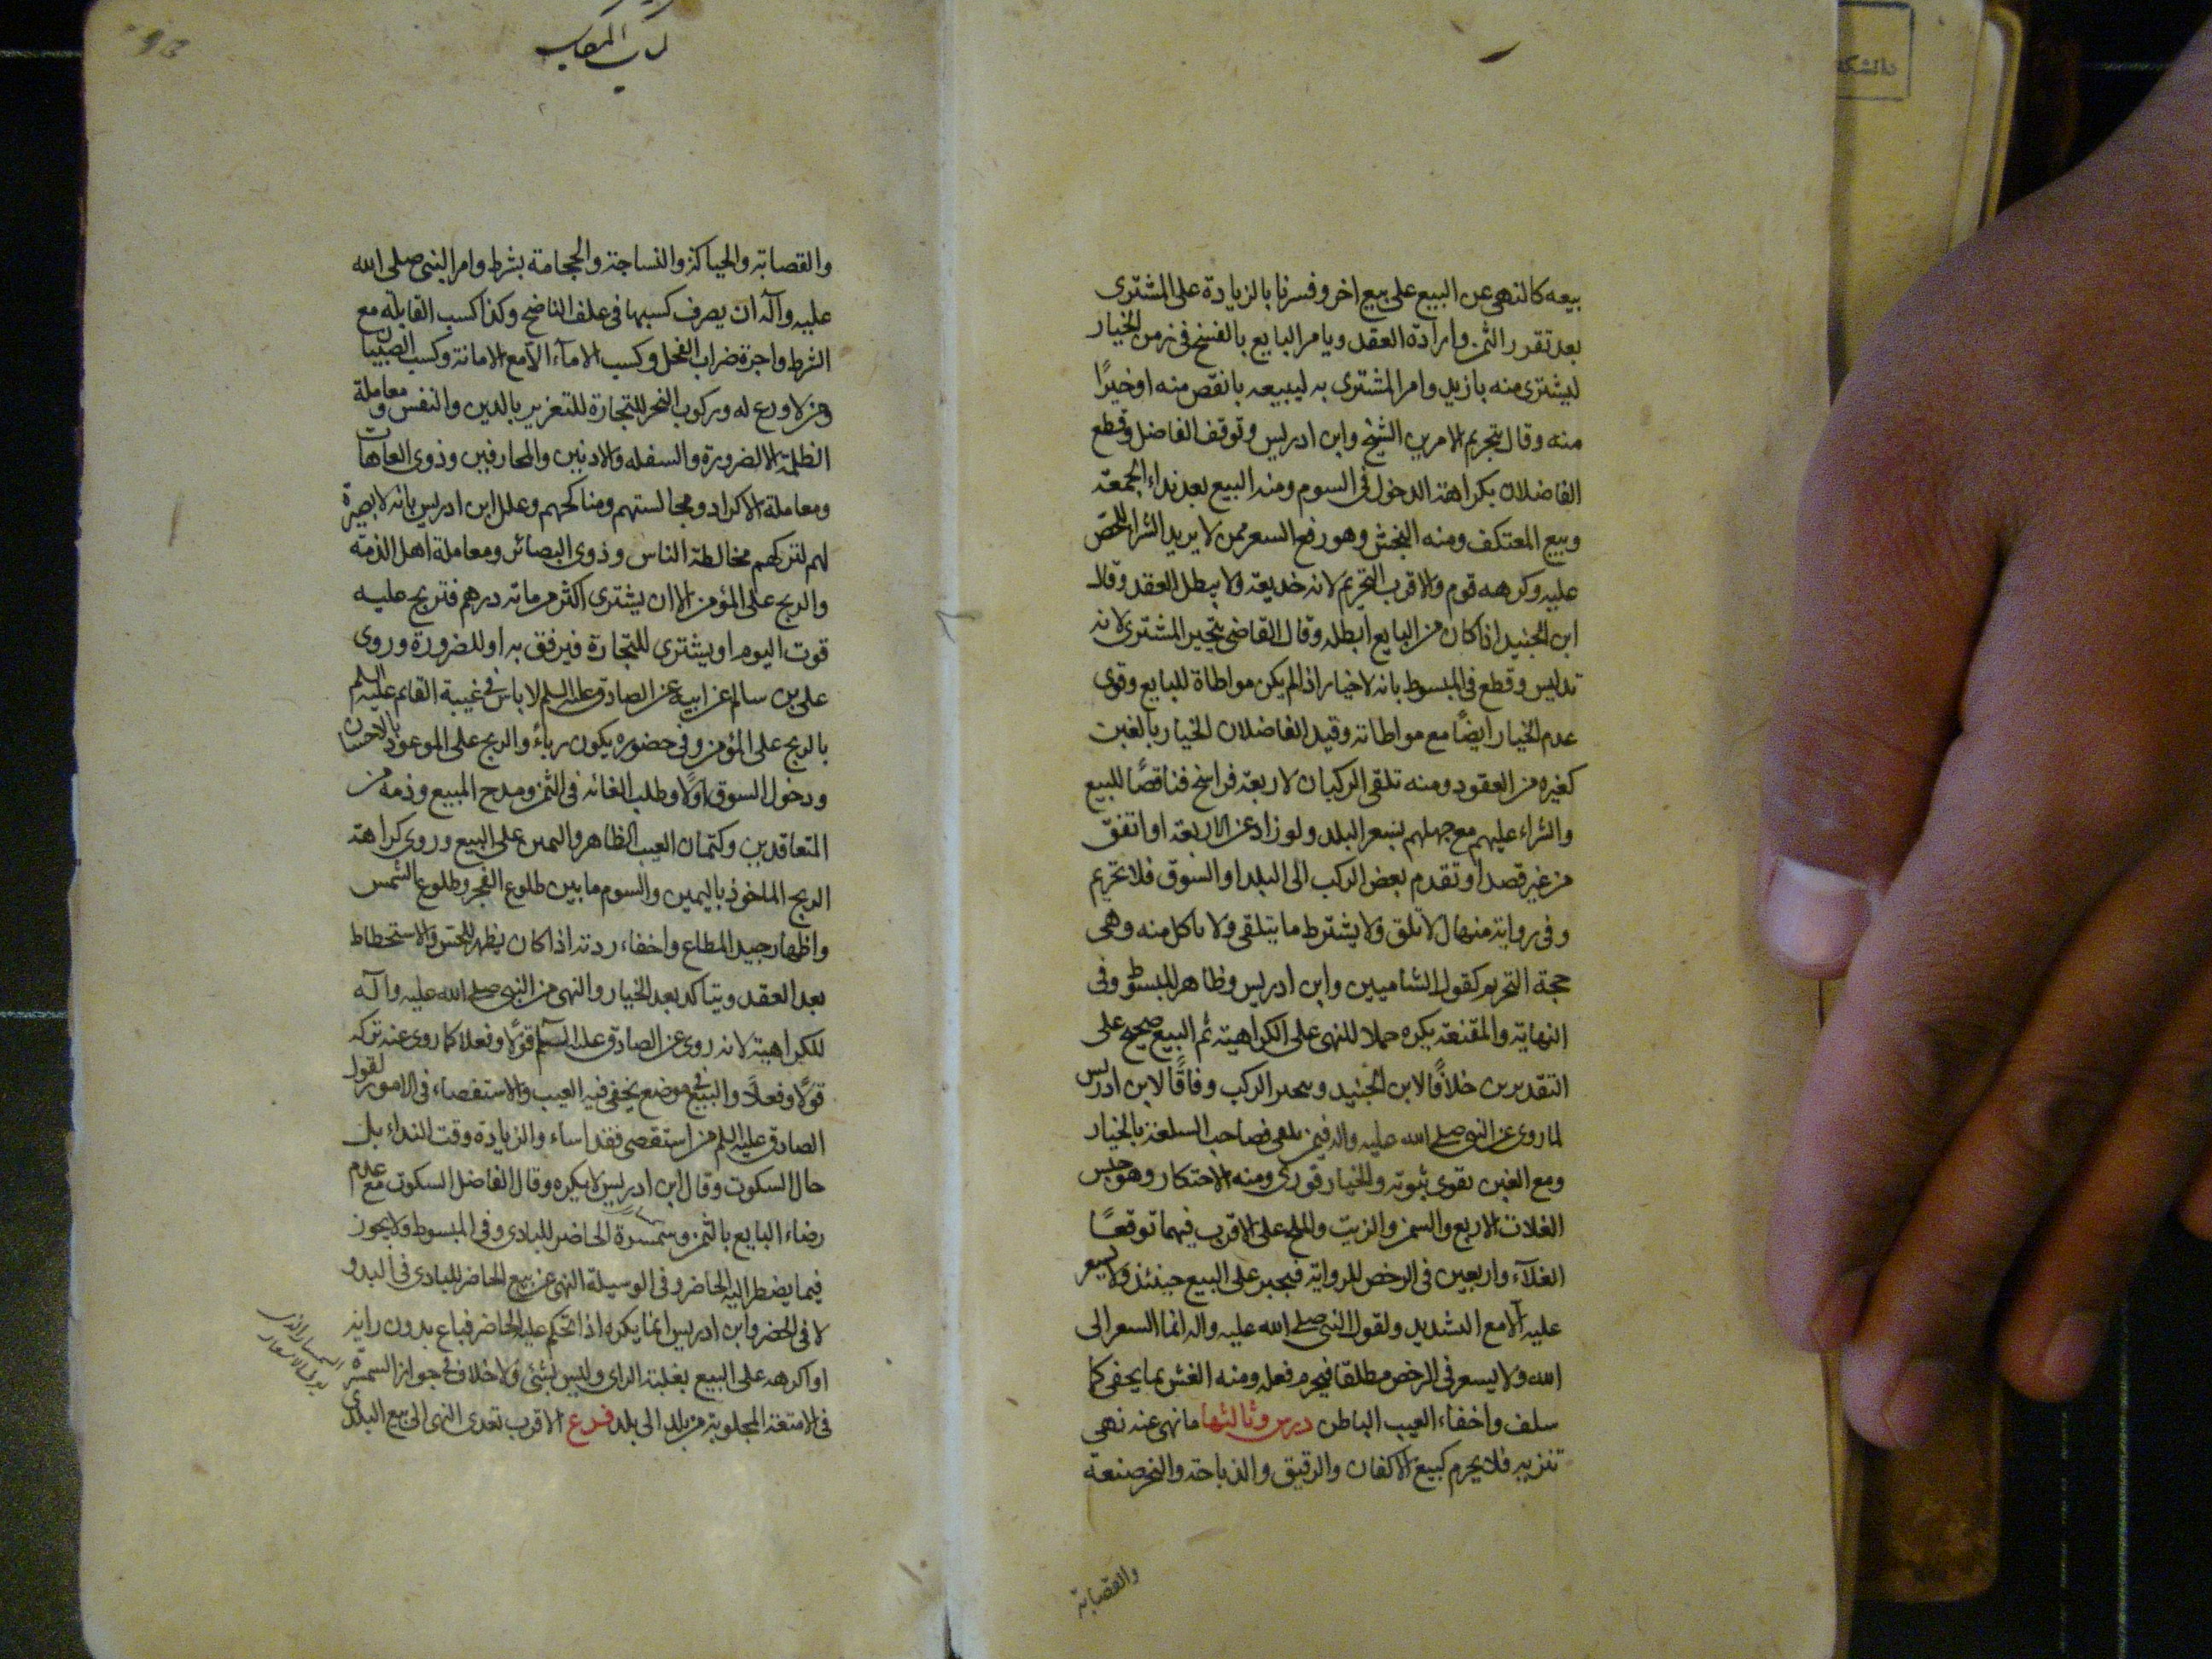 بيعه كالنهي عن البيع على بيع اخر وفسرنا بالزيادة على المشترى
بعد تقرر الثمن وارادة العقد ويامر البايع بالفسخ فى زمن الخيار
ليشترى منه بازيد وامر المشترى به ليبيعه بانقص منه اوخيرًا
منه وقال بتحريم الامرين الشيخ وابن ادريس وتوقف الفاضل وقطع
الفاضلان بكراهة الدخول فى السوم ومنه البيع بعد نداء الجمعة
وبيع المعتكف ومنه النجش وهو رفع السعر ممن لا يريد الشراء للحض
عليه وكرهه قوم والاقرب التحريم لانه خديعة ولا يبطل العقد وقال
ابن الجنيد اذا كان من البايع ابطله وقال القاضى يتخير المشترى لانه
تدليس وقطع فى المبسوط بانه لا خيار اذا لم يكن مواطاة للبايع وقوى
عدم الخيار ايضًا مع مواطاته وقيد الفاضلان الخيار بالغبن
كغيره من العقود ومنه تلقى الركبان لاربعة فراسخ فناقصًا للبيع
والشراء عليهم مع جهلهم بسعر البلد ولو زاد عن الاربعة او اتفق
من غير قصد او تقدم بعض الركب الى البلد او السوق فلا تحريم
وفى رواية منهال لا تلق ولا يشترط ما يتلقى ولا تاكل منه وهى
حجة التحريم كقول الشاميين وابن ادريس وظاهر المبسوط وفى
النهاية والمقنعة يكره حملا للنهى على الكراهية ثم البيع صحيح على
التقديرين خلافًا لابن الجنيد ويتخير الركب وفاقًا لابن ادريس
لما روى عن النبى صلى الله عليه واله فيمن تلقى فصاحب السلعة بالخيار
ومع الغبن يقوى ثبوته والخيار فورى ومنه الاحتكار وهو حبس
الغلات الاربع والسمن والزيت والملح على الاقرب فيهما توقعًا
الغلاء واربعين فى الرخص للرواية فيجبر على البيع حينئذ ولا يسعر
عليه الا مع التشديد ولقول النبى صلى الله عليه واله انما السعر الى
الله ولا يسعر فى الرخص مطلقا فيحرم فعله ومنه الغش بما يخفى كما
سلف واخفاء العيب الباطن درس وثالثها ما نهى عنه نهى
تنزيه فلا يحرم كبيع الاكفان والرقيق والذباحة والنحر صنعة
والقصابة
كتاب المكاسب
والقصابة والحياكة والنساجة والحجامة بشرط وامر النبى صلى الله
عليه وآله ان يصرف كسبها فى علف الناضح وكذا كسب القابلة مع
الشرط واجرة ضراب الفحل وكسب الاماء الا مع الامانة وكسب الصبيان
ومن لا ورع له وركوب البحر للتجارة للتغرير بالدين والنفس ومعاملة
الظلمة الا لضرورة والسفله والادنين والمحارفين وذوى العاهات
ومعاملة الاكراد ومجالستهم ومناكحهم وعلل ابن ادريس بانه لا بصيرة
لهم لتركهم مخالطة الناس وذوى البصائر ومعاملة اهل الذمة
والربح على المؤمن الا ان يشترى اكثر من مائة درهم فتربح عليه
قوت اليوم او يشترى للتجارة فيرفق به او للضرورة وروى
على بن سالم عن ابيه عن الصادق عليه السلم لا باس فى غيبة القائم عليه السلم
بالربح على المؤمن وفى حضوره يكون رباءً والربح على الموعود بالاحسان
ودخول السوق اولًا وطلب الغائه فى الثمن ومدح المبيع وذمه من
المتعاقدين وكتمان العيب الظاهر واليمين على البيع وروى كراهة
الربح الماخوذ باليمين والسوم ما بين طلوع الفجر وطلوع الشمس
واظهار جيد المطاع واخفاء ردته اذا كان يظهر للحس والاستحطاط
بعد العقد ويتاكد بعد الخيار والنهى من النبى صلى الله عليه وآله
للكراهية لانه روى عن الصادق عليه السلم قولًا وفعلا كما روى عنه تركه
قولًا وفعلًا والبيع فى موضع يخفى فيه العيب والاستقصاء فى الامور لقول
الصادق عليه السلم من استقصى فقد اساء والزيادة وقت النداء بل
حال السكوت وقال ابن ادريس لا يكره وقال الفاضل السكوت مع عدم
رضاء البايع بالثمن وسمسرة الحاضر للبادى وفى المبسوط ولا يجوز
فيما يضطر اليه الحاضر وفى الوسيلة النهى عن بيع الحاضر للبادى فى البدو
لا فى الحضر وابن ادريس انما يكره اذا تحكم عليه الحاضر فباع بدون رايه
او اكرهه على البيع بغلبة الراى وليس بشئ ولا خلاف فى جواز السمسرة
فى الامتعة المجلوبة من بلد الى بلد فرع الاقرب تعدى النهى الى بيع البلدى